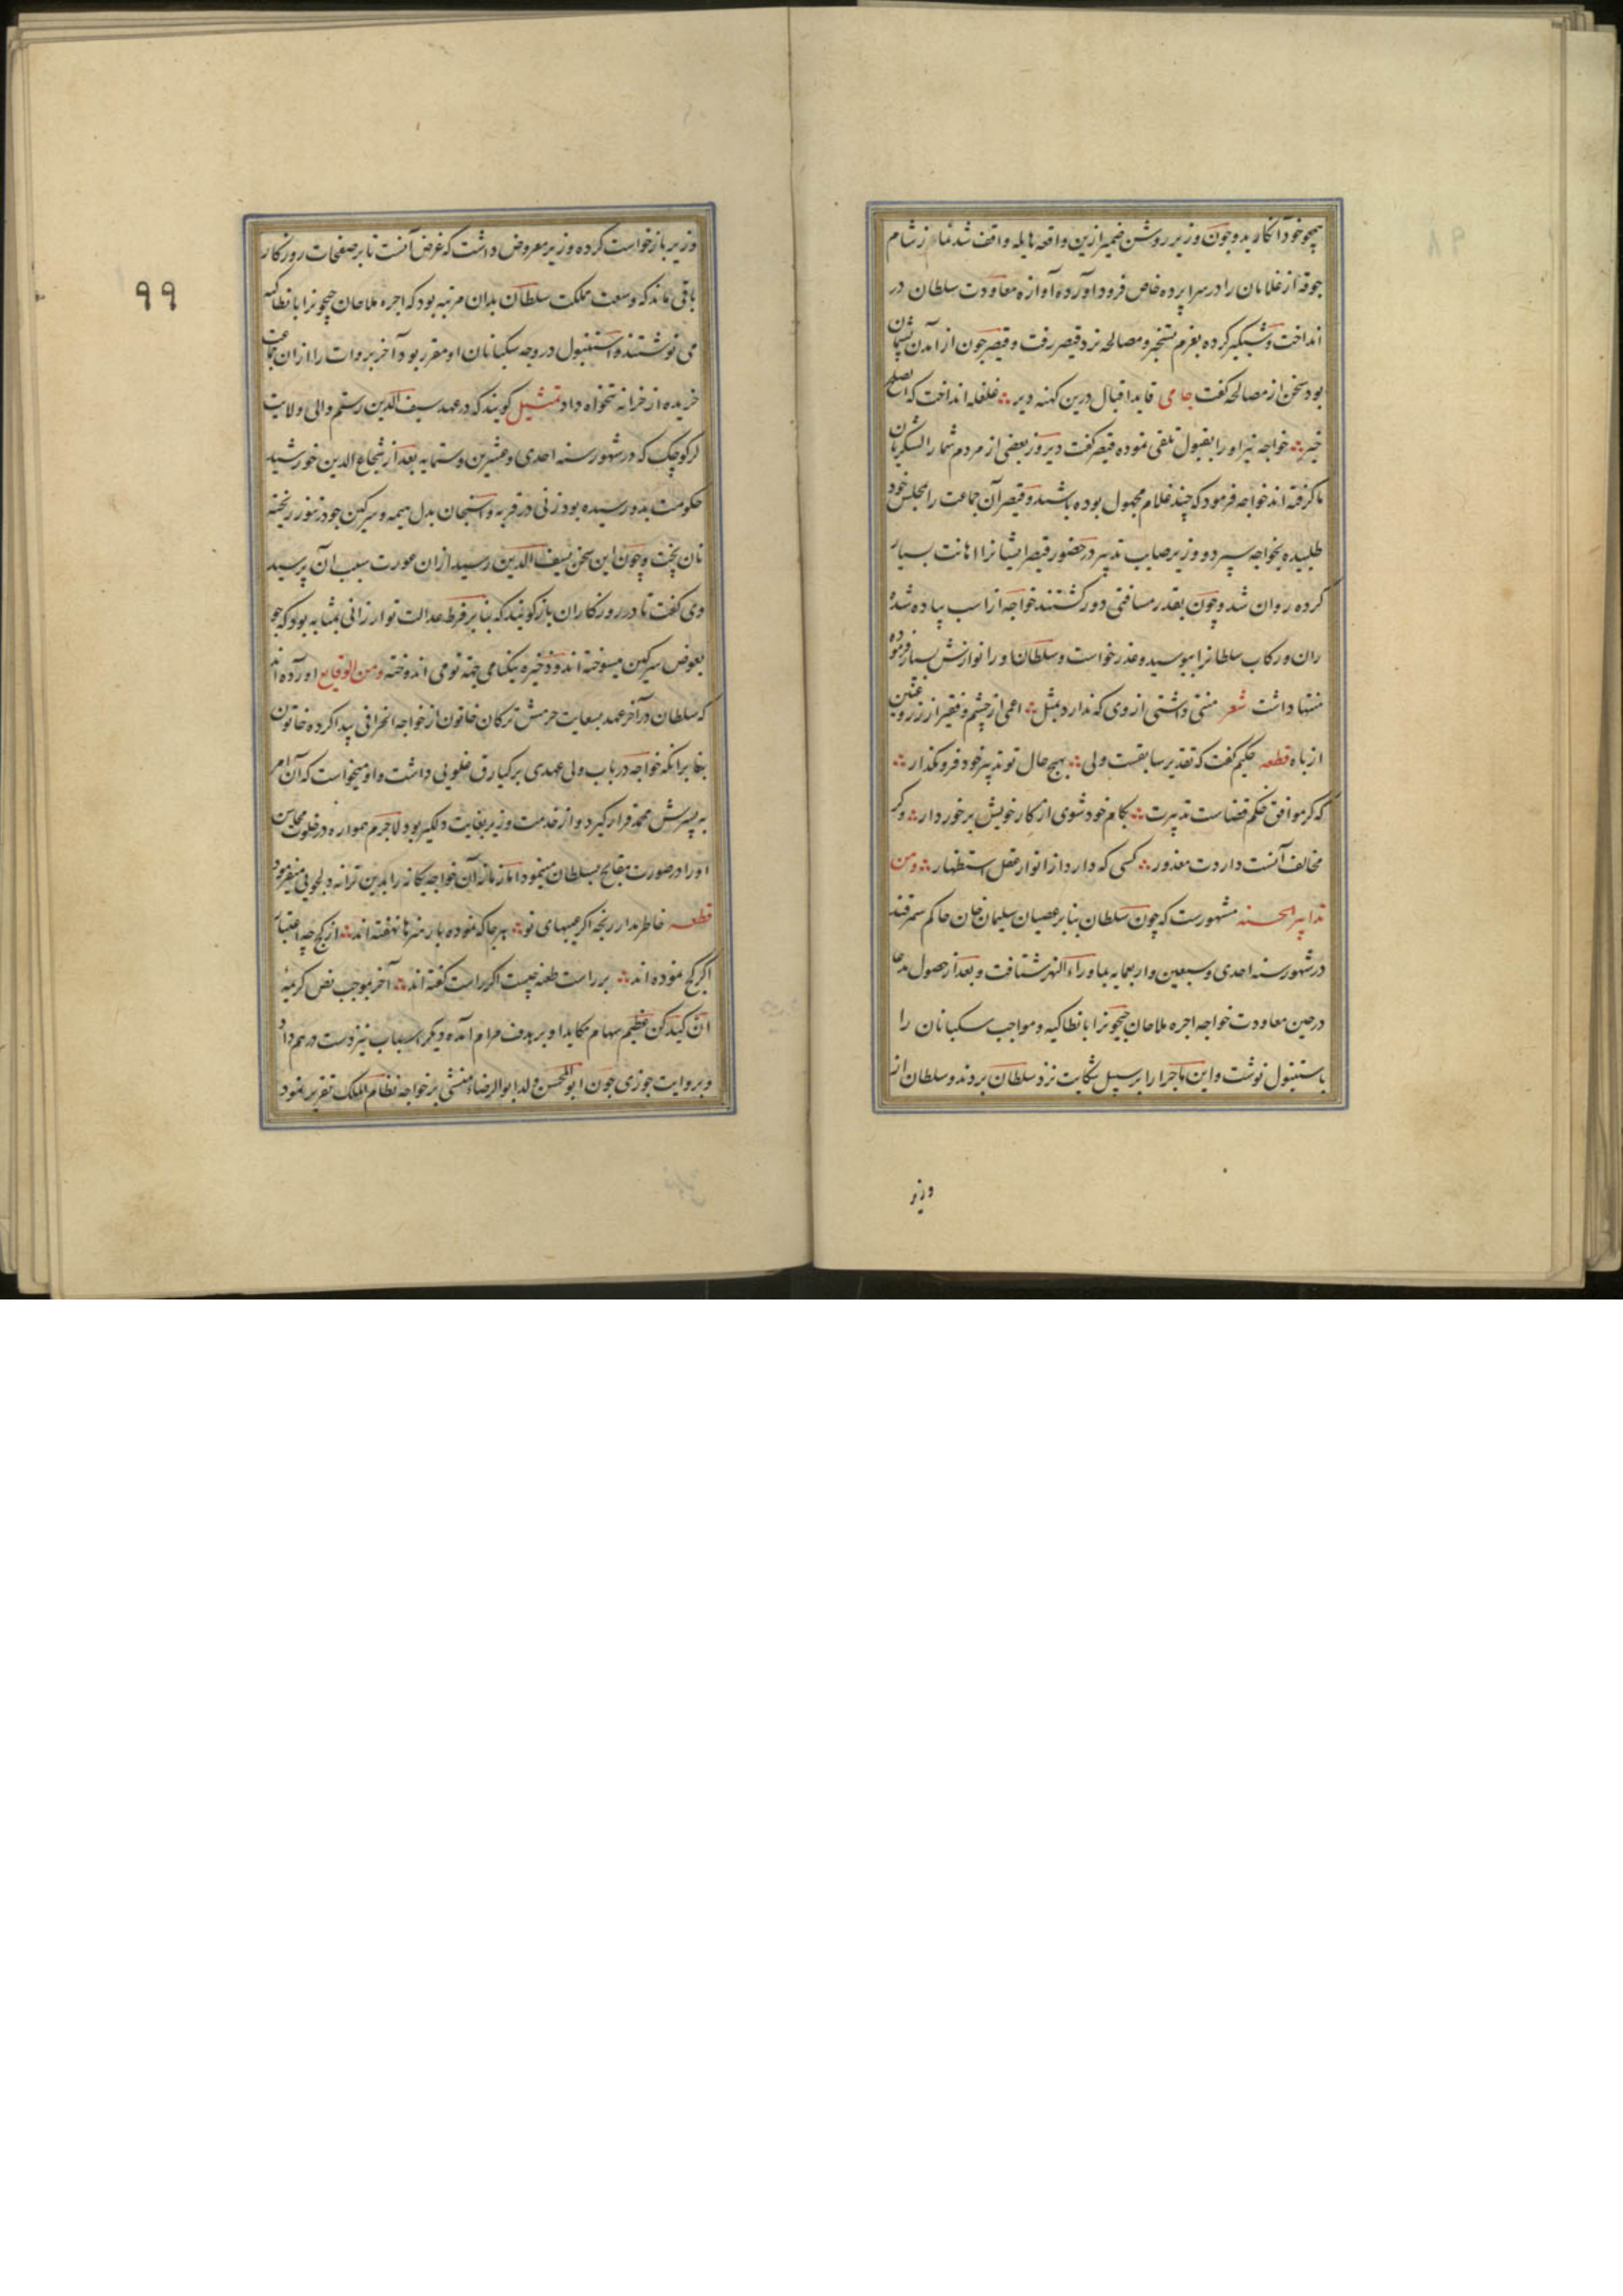 همچو خود انکارید و چون وزیر روشن ضمیر ازین واقعه هایله واقف شد نماز شام
جوقه از غلامان را در سراپرده خاص فرود آورده آوازه معاودت سلطان در
انداخت و شبگیر کرده بعزم و مصالحه نزد قیصر رفت و قیصر چون از آمدن پشیمان
بود سخن از مصالحه گفت جامی قاید اقبال درین کهنه دیر غلغله انداخت که الصلح
خیر خواجه نیز او را بقبول تلقی نموده قیصر گفت دیروز بعضی از مردم شما را لشکریان
ما گرفته اند خواجه فرمود که چند غلام مجهول بوده باشند و قیصر آن جماعت را بمجلس خود
طلبیده بخواجه سپرد و وزیر صایب تدبیر در حضور قیصر ایشانرا اهانت بسیار
کرده روان شد و چون بقدر مسافتی دور گشتند خواجه از اسب پیاده شده
ران و رکاب سلطانرا ببوسید و عذر خواست و سلطان او را نوازش بسیار فرموده
منتها داشت شعر منتی داشتی از وی که ندارد بمثل اعمی از چشم و فقیر از زر و عنین
از باه قطعه حکیم گفت که تقدیر سابقست ولی بهیچ حال تو تدبیر خود فرو مگذار
که گر موافق حکم قضاست تدبیرت بکام خود شوی از کار خویش برخوردار وگر
مخالف آنست داردت معذور کسی که دارد از انوار عقل استظهار ومن
تدابیر الحسنه مشهورست که چون سلطان بنابر عصیان سلیمان خان حاکم سمرقند
در شهور سنه احدی و سبعین و اربعمایه بماوراء النهر شتافت و بعد از حصول مدعا
در حین معاودت خواجه اجره ملاحان جیحونرا بانطاکیه و مواجب سکبانان را
باستنبول نوشت و این ماجرا را بر سبیل شکایت نزد سلطان بردند و سلطان از
وزیر
۹۹
وزیر بازخواست کرده وزیر معروض داشت که غرض آنست تا بر صفحات روزکار
باقی ماند که وسعت مملکت سلطان بدان مرتبه بود که اجره ملاحان جیحونرا بانطاکیه
می نوشتند و استنبول در وجه سکبانان او مقرر بود آخر بروات را از ان جماعت
خریده از خزانه تنخواه داد تمثیل کویند که در عهد سیف الدین رستم والی ولایت
لر کوچک که در شهور سنه احدی و عشرین و ستمایه بعد از شجاع الدین خورشید
حکومت بدو رسیده بود زنی در قریه بدل هیمه و سرکین جو در تنور ریخته
نان پخت و چون این سخن بسیف الدین رسید از ان عورت سبب آن پرسید
وی گفت تا در روزکاران باز کویند که بنابر فرط عدالت تو ارزانی بمثابه بود که جو
بعوض سرکین میسوخته اند و ذخیره نیکنامی جهة تو می اندوخته ومن الوقایع آورده اند
که سلطان در آخر عهد بسعایت حرمش ترکان خاتون از خواجه انحرافی پیدا کرده خاتون
بنابر انکه خواجه در باب ولی عهدی برکیارق غلویی داشت و او میخواست که آن امر
به پسرش محمد قرار گیرد و از خدمت وزیر بغایت دلگیر بود لاجرم همواره در خلوت محاسن
او را در صورت مقابح بسلطان مینمود اما زمانه آن خواجه یکانه را بدین ترانه دلجویی میفرمود
قطعه خاطر مدار رنجه اگر عیبهای تو هر جا که نموده بار هنرها نهفته اند از کج چه اعتبار
اگر کج نموده اند بر راست طعنه چیست اگر راست گفته اند آخر بموجب نص کریمه
ان کیدکن عظیم سهام مکاید او بر هدف مرام آمده دیگر اسباب نیز دست درهم داد
و بروایت جوزی چون ابو المحسن ولد ابو الرضاء منشی بر خواجه نظام الملک تقریر نمود